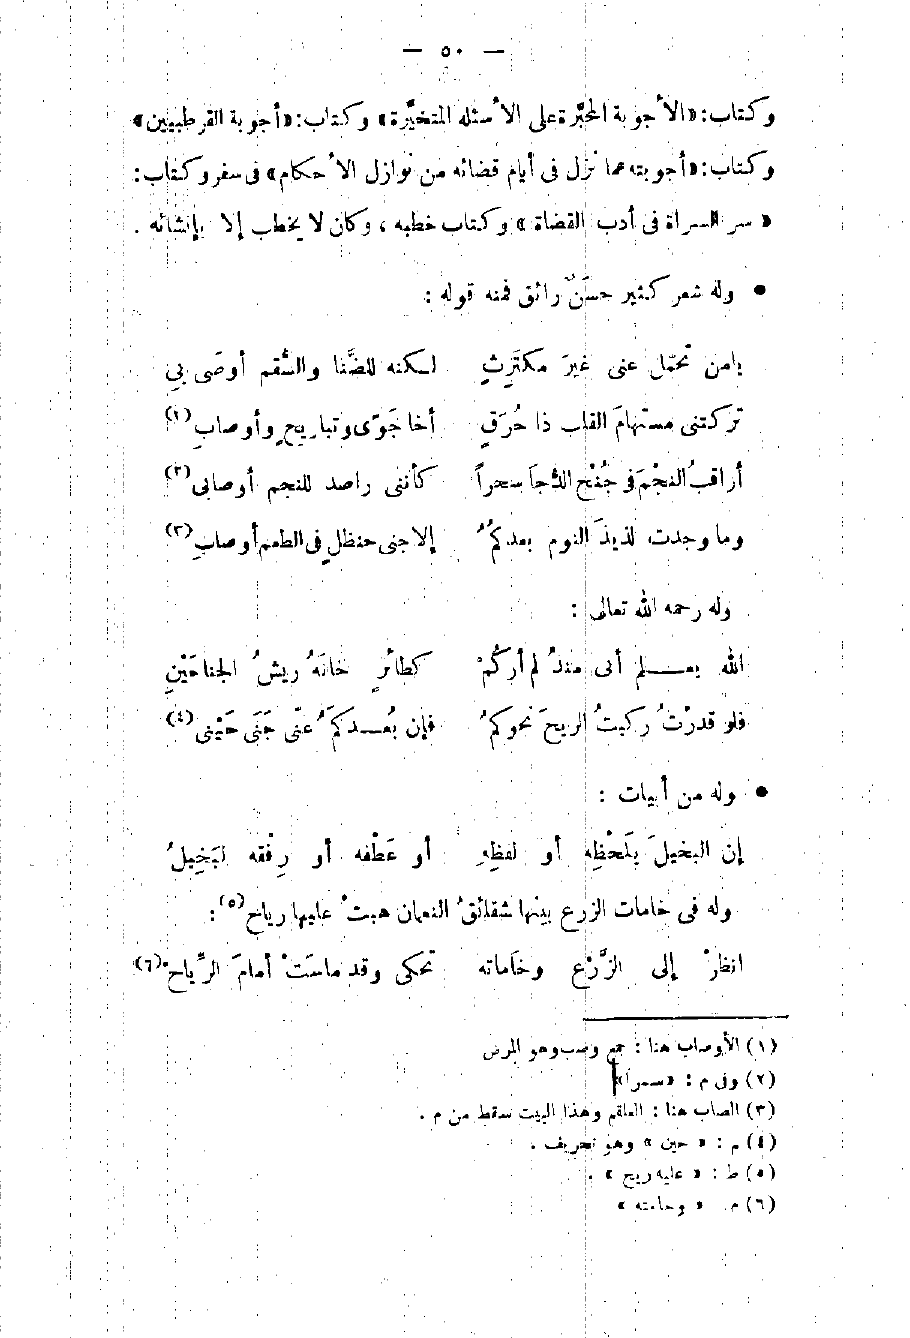 — ٥٠ —
وكتاب: «الأجوبة المحبّرة على الأسئلة المتخيّرة» وكتاب: «أجوبة القرطبيين»
وكتاب: «أجوبته عما نزل في أيام قضائه من نوازل الأحكام» في سفر وكتاب:
« سر السراة في أدب القضاة » وكتاب خطبه ، وكان لا يخطب إلا بإنشائه .
• وله شعر كثير حسَنٌ رائق فمنه قوله :
يامن تحمّل عني غيرَ مكتَرِثٍ لكنه للضَّنا والسُّقم أوصَى بي
تركتني مستهامَ القلب ذا حُرَقٍ أخا جَوًى وتباريحٍ وأوصابِ (١)
أراقبُ النجْمَ في جُنْحِ الدُّجَا سحراً كأنني راصد للنجم أوصابي (٢)
وما وجدت لذيذَ النوم بعدكمُ إلا جنى حنظلٍ في الطعم أو صابِ (٣)
وله رحمه الله تعالى :
الله يعـلم أني منذُ لم أركُمْ كطائرٍ خانَهُ ريشُ الجناحَيْنِ
فلو قدرْتُ ركبتُ الريحَ نحوكمُ فإن بُعـدكمَُ عنّي جَنَى حَيْني (٤)
• وله من أبيات :
إن البخيلَ بلَحْظِه أو لفظِهِ أو عَطْفه أو رِفْقه لبَخِيلُ
وله في خامات الزرع بينها شقائقُ النعمان هبتْ عليها رياح (٥) :
انظرْ إلى الزَّرْع وخَاماته تحكي وقد ماسَتْ أمامَ الرِّياحْ (٦)
(١) الأوصاب هنا : جمع وصب وهو المرض
(٢) وفي م : «سـراً»
(٣) الصاب هنا : العلقم وهذا البيت سقط من م .
(٤) م : « حين » وهو تحريف .
(٥) ط : « عليه ريح » .
(٦) م . « وحامته »